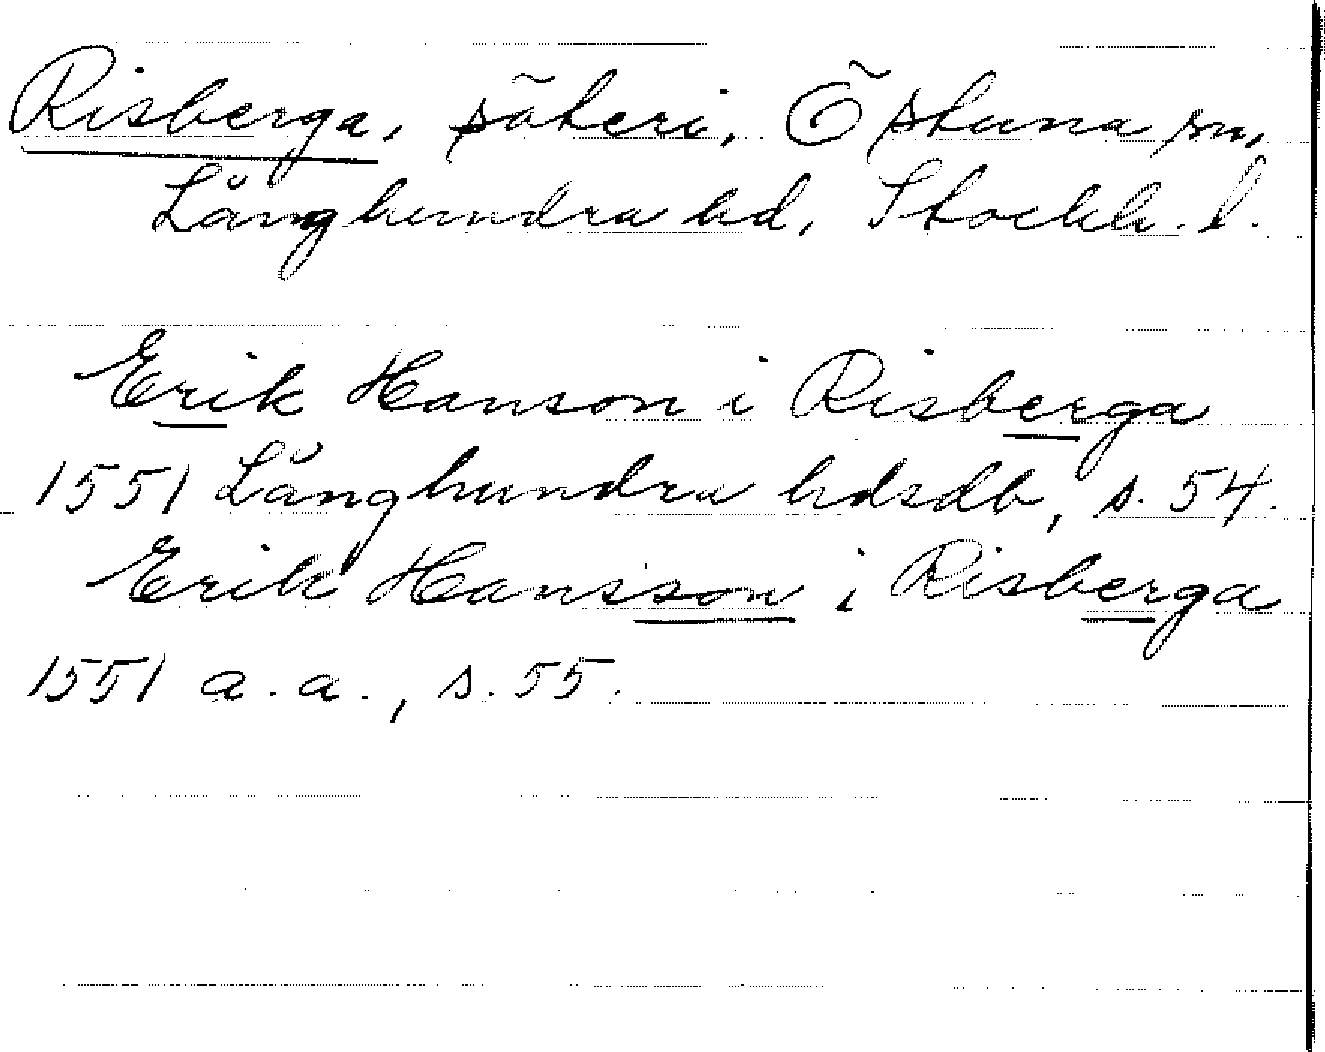 Risberga, säteri, Östuna sn,
Långhundra hd, Stockh. l.
Erik Hanson i Risberga
1551 Långhundra hdsdb, s. 54.
Erik Hansson i Risberga
1551 a.a., s. 55.